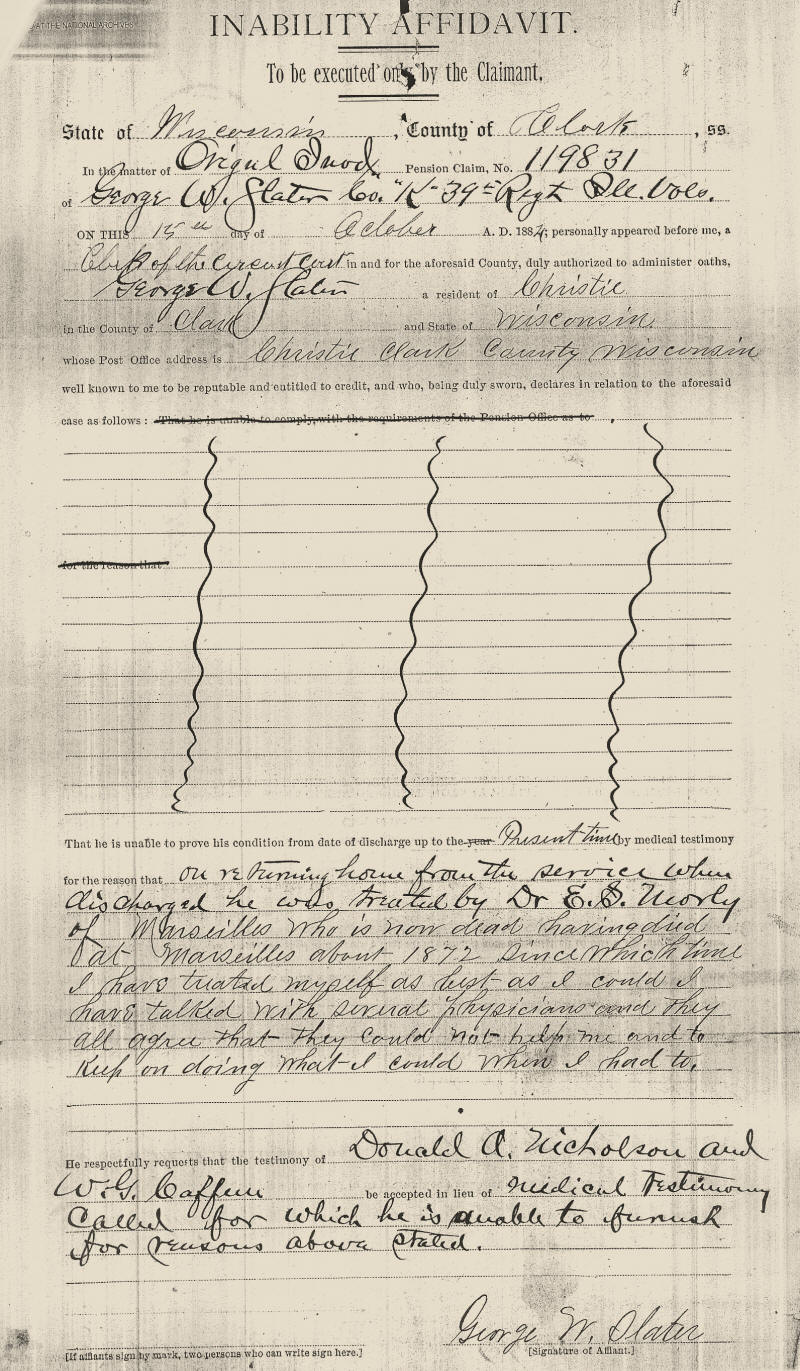 AT THE NATIONAL ARCHIVES
INABILITY AFFIDAVIT.
To be executed only by the Claimant.
State of Wisconsin, County of Clark, ss.
In the matter of Origul Invd. Pension Claim, No. 119831
of George W. Slater Co. "K" 39th Regt Ill. Vols.
ON THIS 15th day of October A. D. 1884; personally appeared before me, a
Clerk of the Circuit Court in and for the aforesaid County, duly authorized to administer oaths,
George W. Slater a resident of Christie
in the County of Clark and State of Wisconsin.
whose Post Office address is Christie Clark County Wisconsin
well known to me to be reputable and entitled to credit, and who, being duly sworn, declares in relation to the aforesaid
case as follows: That he is unable to comply with the requirements of the Pension Office as to
for the reason that
That he is unable to prove his condition from date of discharge up to the year Present time by medical testimony
for the reason that on returning home from the service when
discharged he was treated by Dr E.S. Morly
of Marseilles who is now dead having died
at Marseilles about 1872 since which time
I have treated myself as best as I could I
have talked with several physicians and they
all agree that they could not help me and to
keep on doing what I could when I had to.
He respectfully requests that the testimony of Donald A. Nicholson and
W.G. be accepted in lieu of medical testimony
called for which he is unable to furnish
for reasons above stated.
George W. Slater
[If affiants sign by mark, two persons who can write sign here.] [Signature of Affiant.]